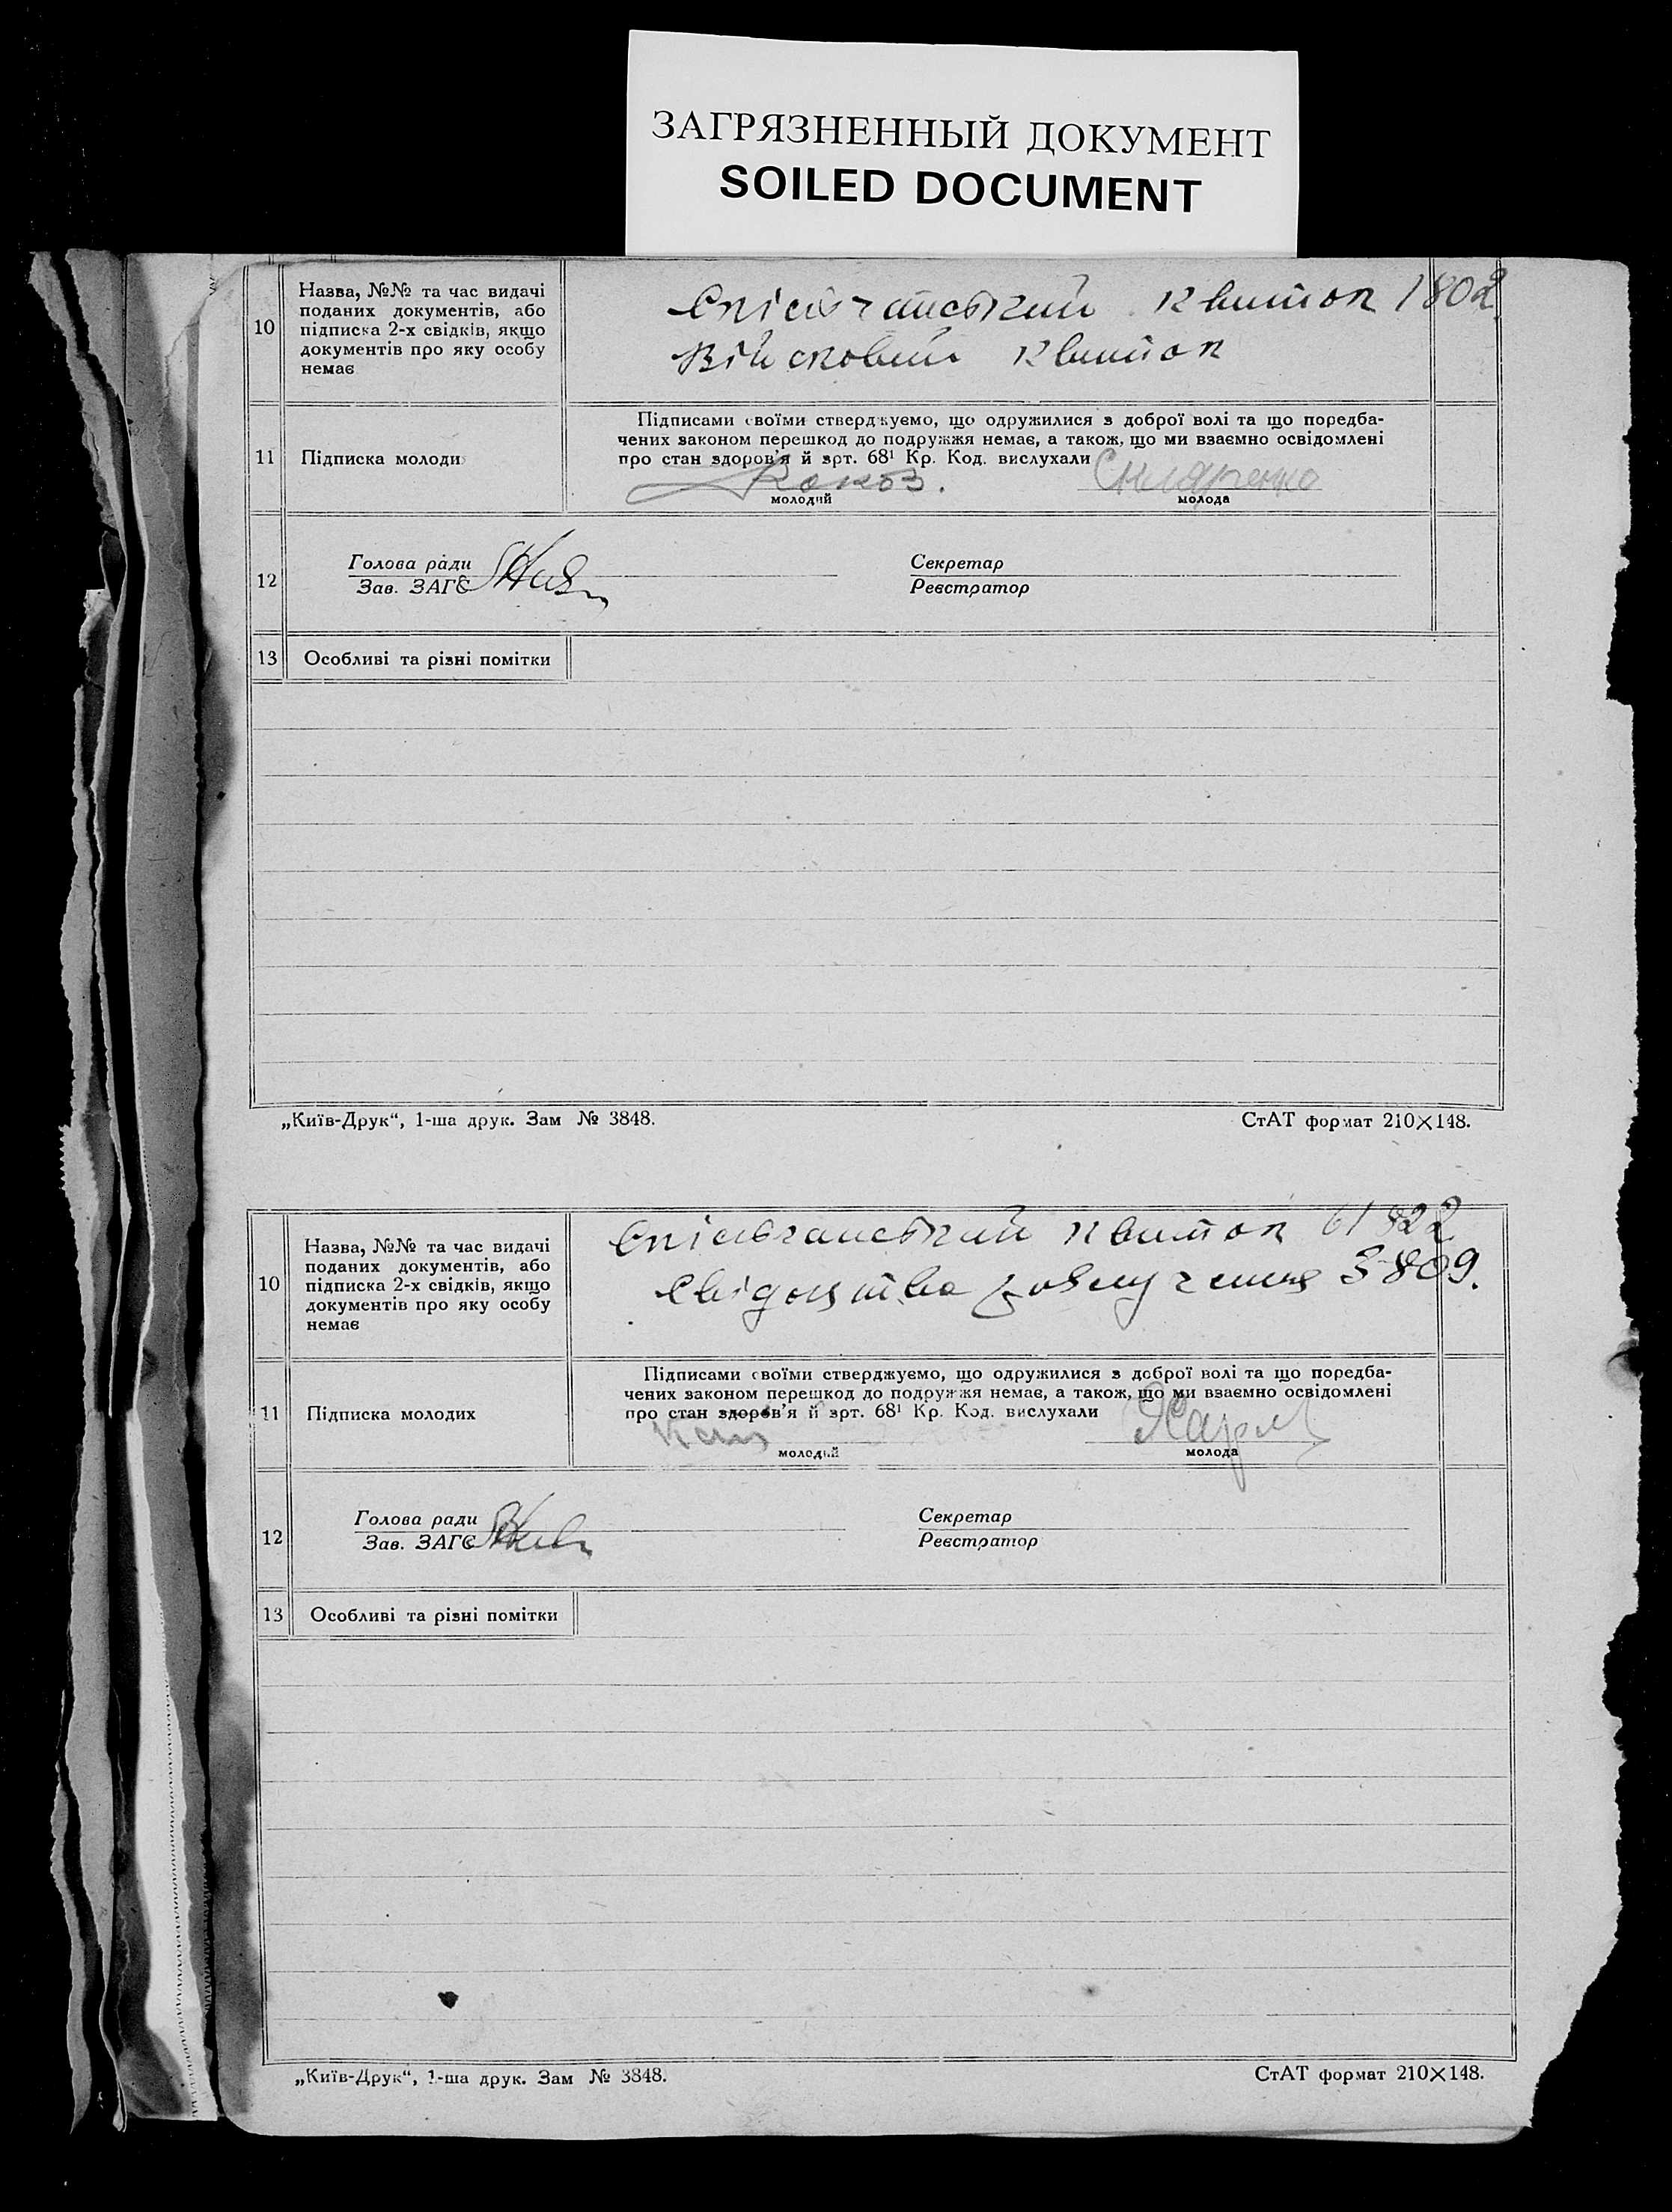 ЗАГРЯЗНЕННЫЙ ДОКУМЕНТ
SOILED DOCUMENT
10
Назва, №№ та час видачі
поданих документів, або
підписка 2-х свідків, якщо
документів про яку особу
немає
квиток 1802
Військовий квиток
11
Підписка молоди
Підписами своїми стверджуємо, що одружилися з доброї волі та що поредба-
чених законом перешкод до подружжя немає, а також, що ми взаємно освідомлені
про стан здоров'я й арт. 68¹ Кр. Код. вислухали
Скляренко
молодий
молода
12
Голова ради
Зав. ЗАГС
Секретар
Реєстратор
13
Особливі та різні помітки
„Київ-Друк“, 1-ша друк. Зам № 3848.
СтАТ формат 210×148.
10
Назва, №№ та час видачі
поданих документів, або
підписка 2-х свідків, якщо
документів про яку особу
немає
квиток 61822
3809.
11
Підписка молодих
Підписами своїми стверджуємо, що одружилися з доброї волі та що поредба-
чених законом перешкод до подружжя немає, а також, що ми взаємно освідомлені
про стан здоров'я й арт. 68¹ Кр. Код. вислухали
молодий
молода
12
Голова ради
Зав. ЗАГС
Секретар
Реєстратор
13
Особливі та різні помітки
„Київ-Друк“, 1-ша друк. Зам № 3848.
СтАТ формат 210×148.